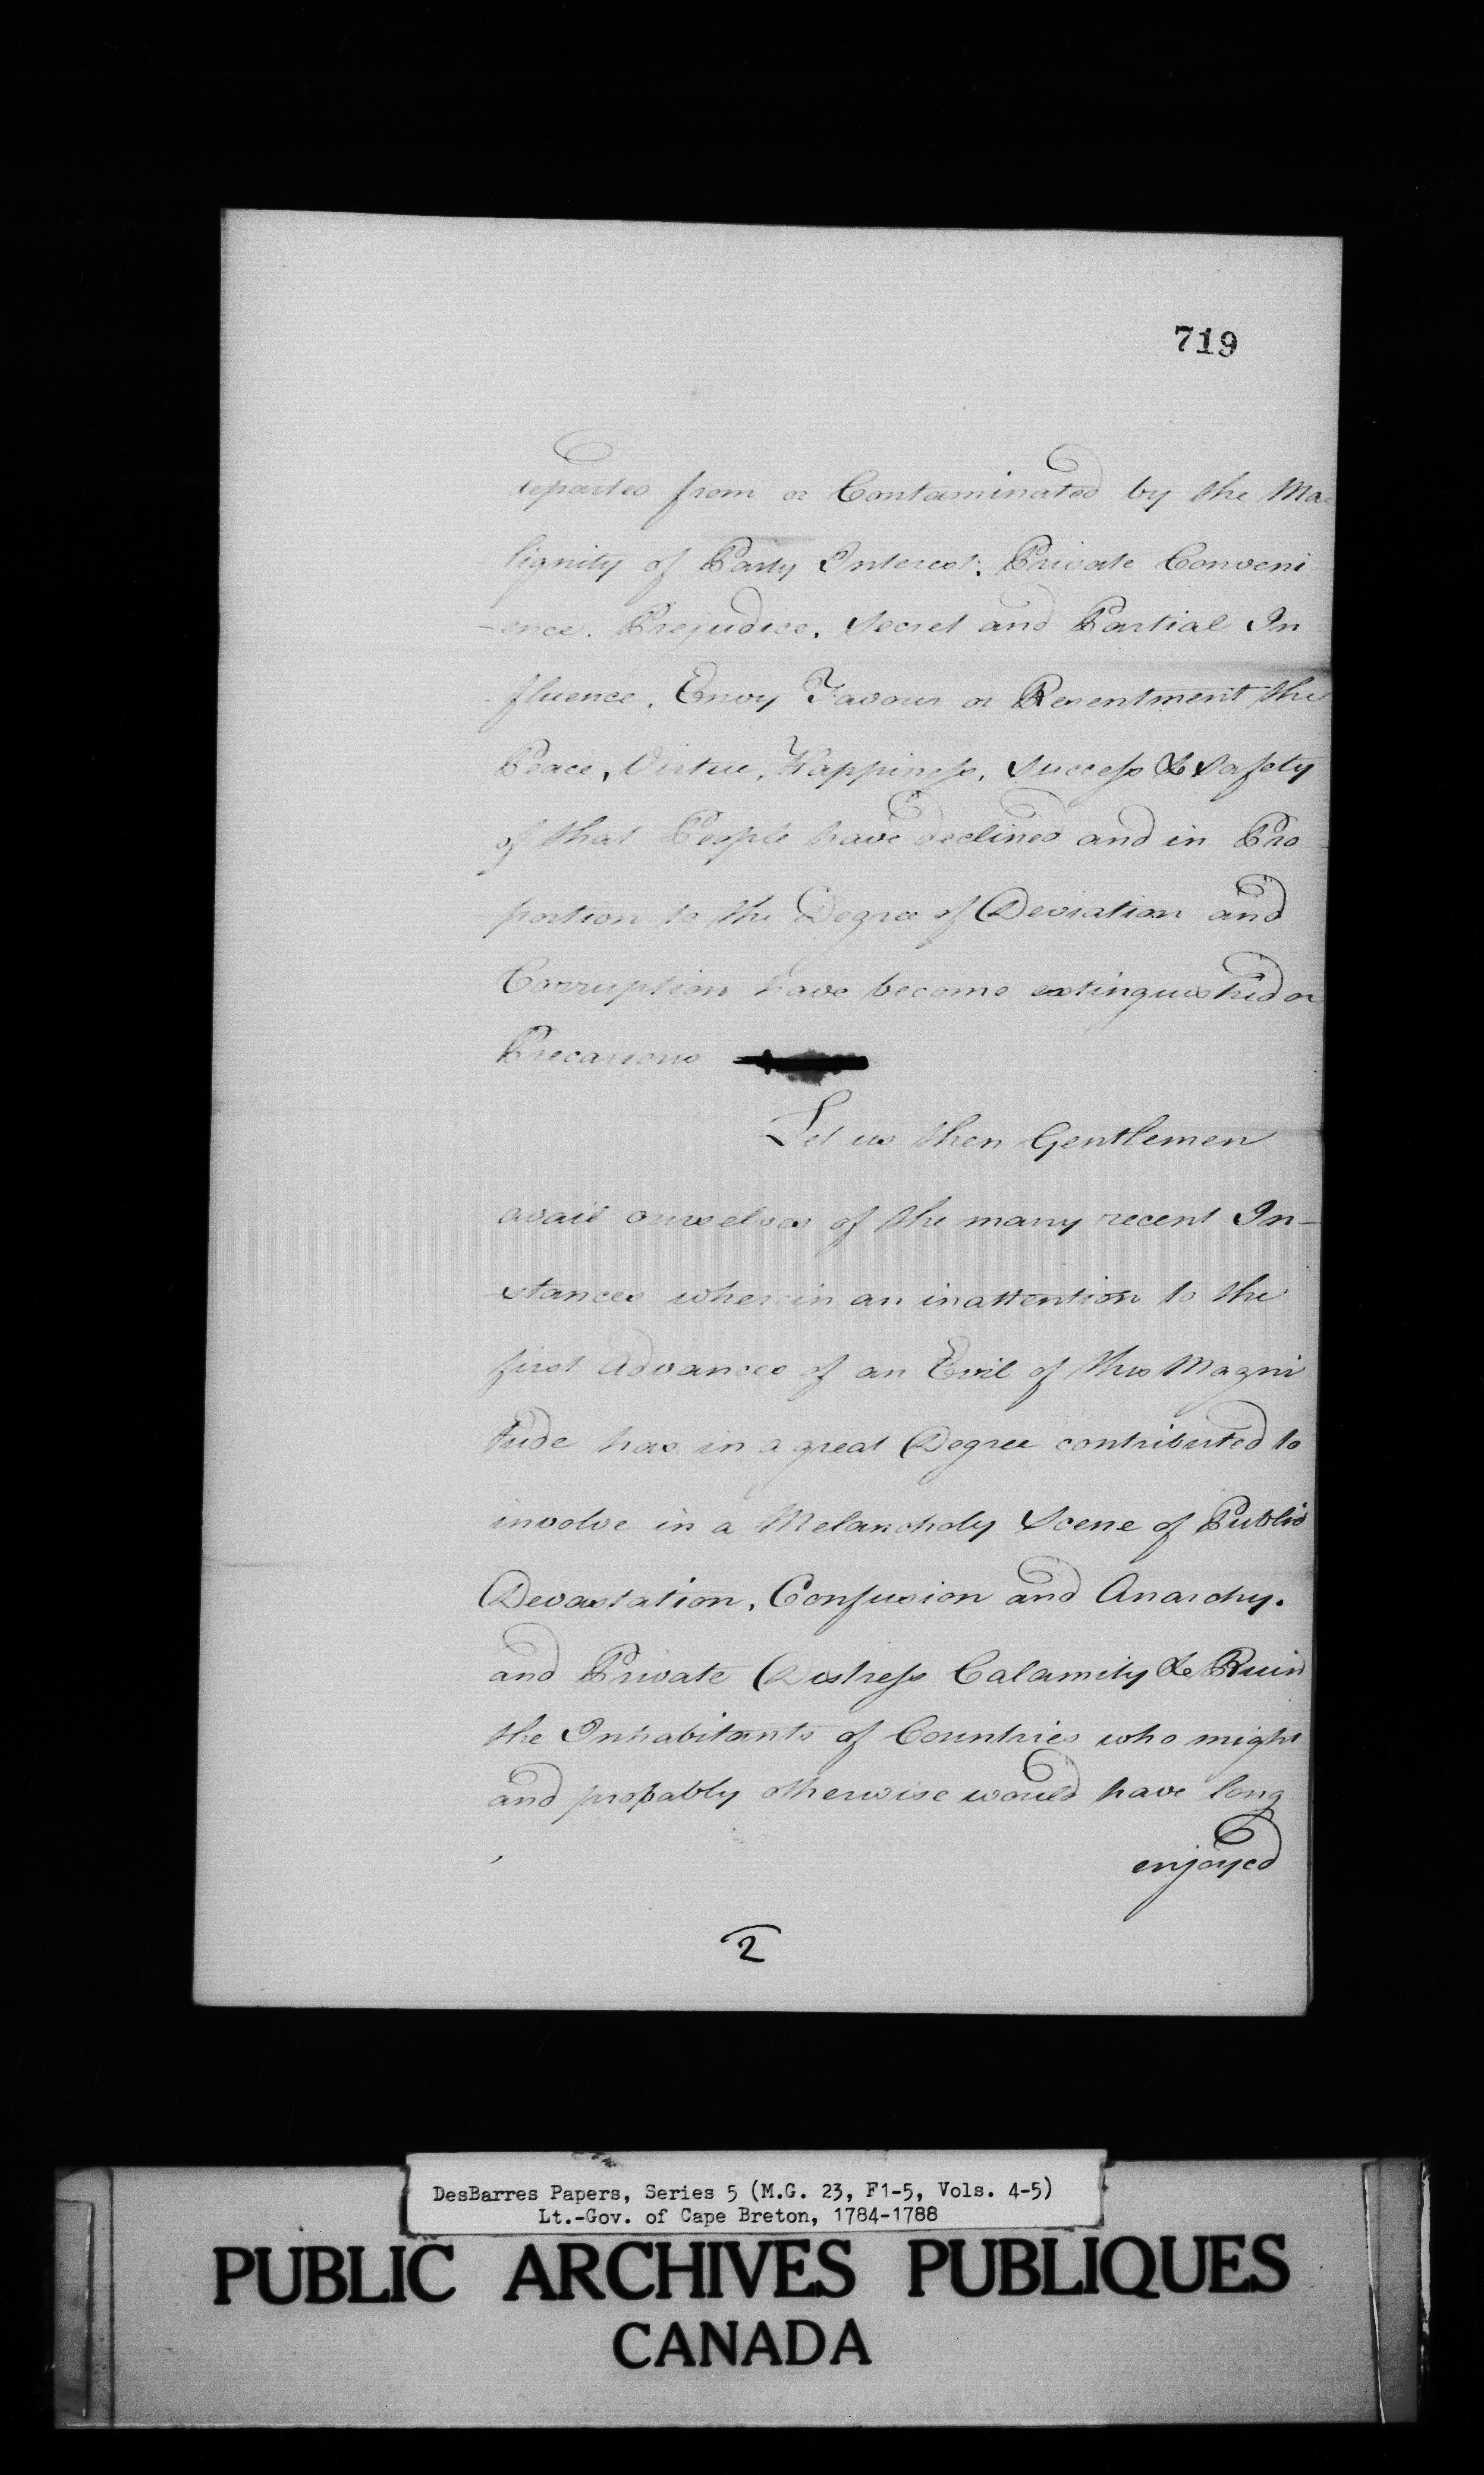 719
departed from or Contaminated by the Ma
lignity of Party Interest, Private Conveni
-ence. Prejudice, Secret and Partial In
fluence, Envy Favour or Resentment the
Peace, Virtue, Happiness, Success & Safety
of that People have declined and in Pro
portion to the Degree of Deviation and
Corruption have become extinguished or
Precarious
Let us then Gentlemen
avail ourselves of the many recent In-
stances wherein an inattention to the
first Advances of an Evil of this Magni
tude has in a great Degree contributed to
involve in a Melancholy Scene of Public
Devastation, Confusion and Anarchy.
and Private Distress Calamity & Ruin
the Inhabitants of Countries who might
and probably otherwise would have long
enjoyed
2
DesBarres Papers, Series 5 (M.G. 23, F1-5, Vols. 4-5)
Lt.-Gov. of Cape Breton, 1784-1788
PUBLIC ARCHIVES PUBLIQUES
CANADA